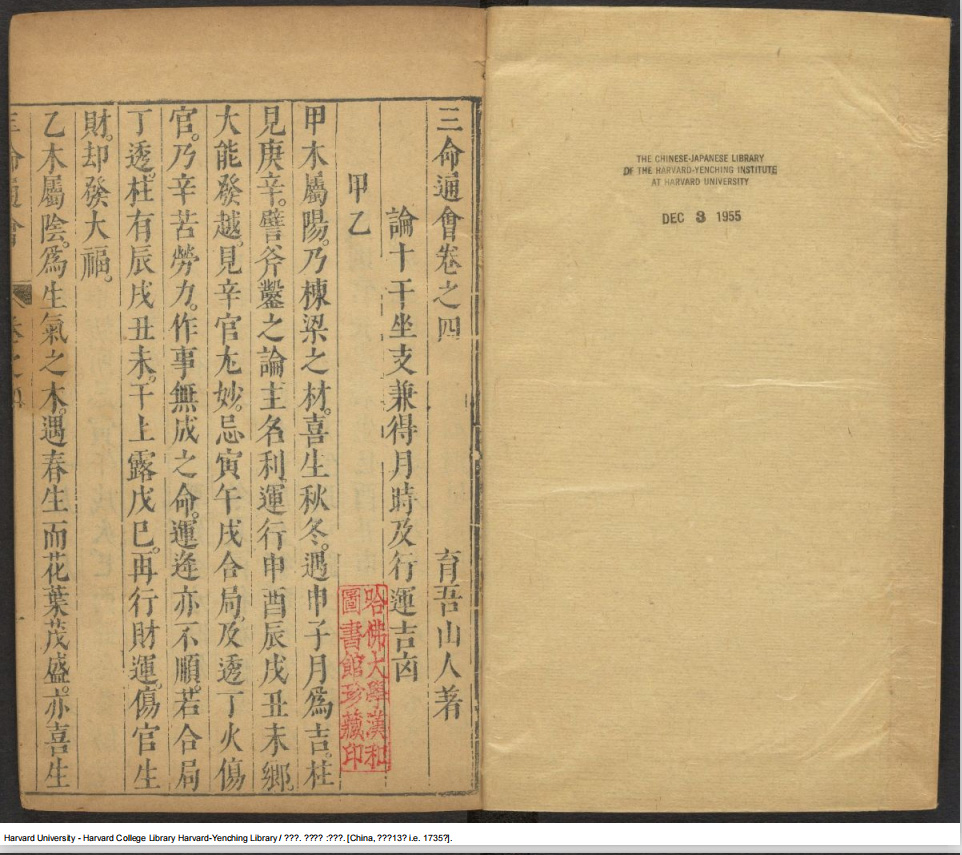 三命通會卷之四
育吾山人著
論十干坐支兼得月時及行運吉凶
甲乙
甲木屬陽。乃棟梁之材。喜生秋冬。遇申子月爲吉。柱
見庚辛。譬斧鑿之論主名利。運行申酉辰戌丑未鄉。
大能發越。見辛官尤妙。忌寅午戌合局。及透丁火傷
官。乃辛苦勞力。作事無成之命。運逢亦不順。若合局
丁透。柱有辰戌丑未。干上露戊巳。再行財運。傷官生
財。却發大福。
乙木屬陰。爲生氣之木。遇春生而花葉茂盛。亦喜生
哈佛大學漢和
圖書館珍藏印
THE CHINESE-JAPANESE LIBRARY
OF THE HARVARD-YENCHING INSTITUTE
AT HARVARD UNIVERSITY
DEC 3 1955
Harvard University - Harvard College Library Harvard-Yenching Library / ???. ???? :???. [China, ???13? i.e. 1735?].